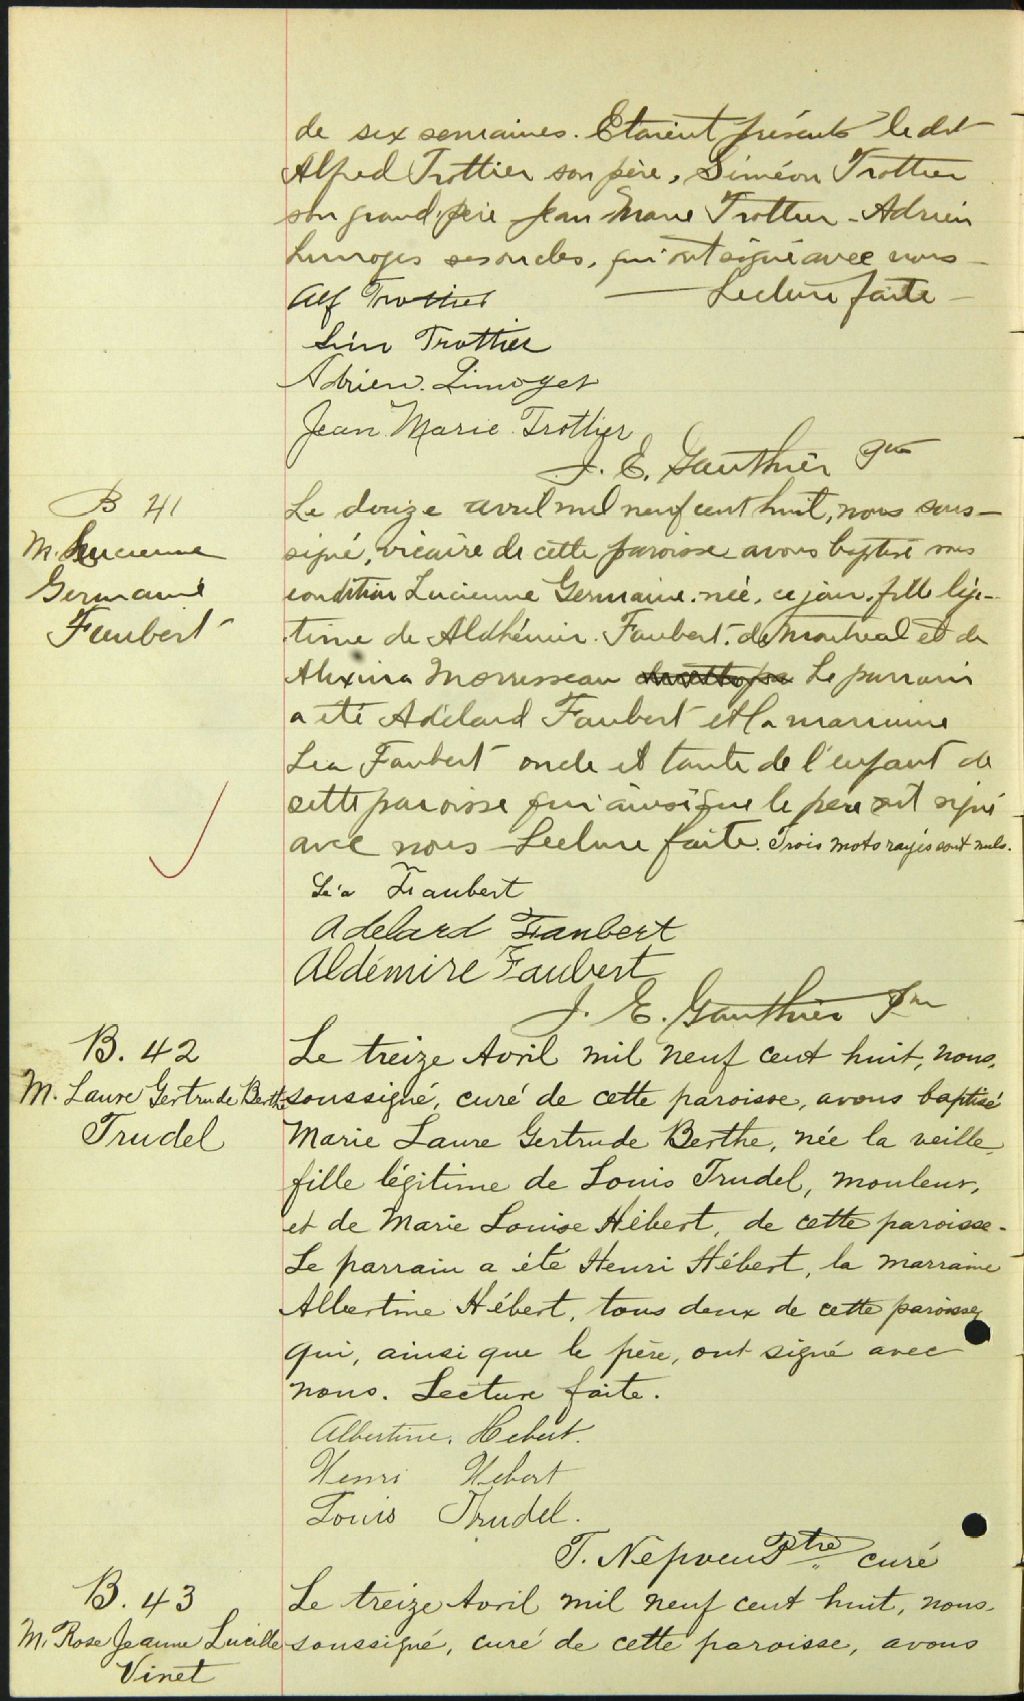 de six semaines. Etaient présents le dit
Alfred Trottier son père, Siméon Trottier
son grand'père Jean Marie Trottier - Adrien
Limoges ses oncles, qui ont signé avec nous -
Alf Trottier — Lecture faite -
Sim Trottier
Adrien. Limoges
Jean Marie Trottier
J. E. Gauthier
B 41
M. Lucienne
Germaine
Faubert
Le douze avril mil neuf cent huit, nous sous-
signé, vicaire de cette paroisse avons baptisé sous
condition Lucienne Germaine. née, ce jour, fille légi-
time de Aldhémir. Faubert. de Montreal et de
Alexina Morrisseau Le parrain
a été Adélard Faubert et la marraine
Léa Faubert oncle et tante de l'enfant de
cette paroisse qui ainsi que le père ont signé
avec nous Lecture faite. Trois mots rayés sont nuls.
Léa Faubert
Adelard Faubert
Aldémire Faubert
J. E. Gauthier
B. 42
M. Laure Gertrude Berthe
Trudel
Le treize Avril mil neuf cent huit, nous,
soussigné, curé de cette paroisse, avons baptisé
Marie Laure Gertrude Berthe, née la veille,
fille légitime de Louis Trudel, mouleur,
et de Marie Louise Hébert, de cette paroisse.
Le parrain a été Henri Hébert, la marraine
Albertine Hébert, tous deux de cette paroisse,
qui, ainsi que le père, ont signé avec
nous. Lecture faite.
Albertine. Hebert.
Henri Hebert
Louis Trudel.
T. Nepveu Ptre curé
B. 43
M. Rose Jeanne Lucille
Vinet
Le treize Avril mil neuf cent huit, nous
soussigné, curé de cette paroisse, avons